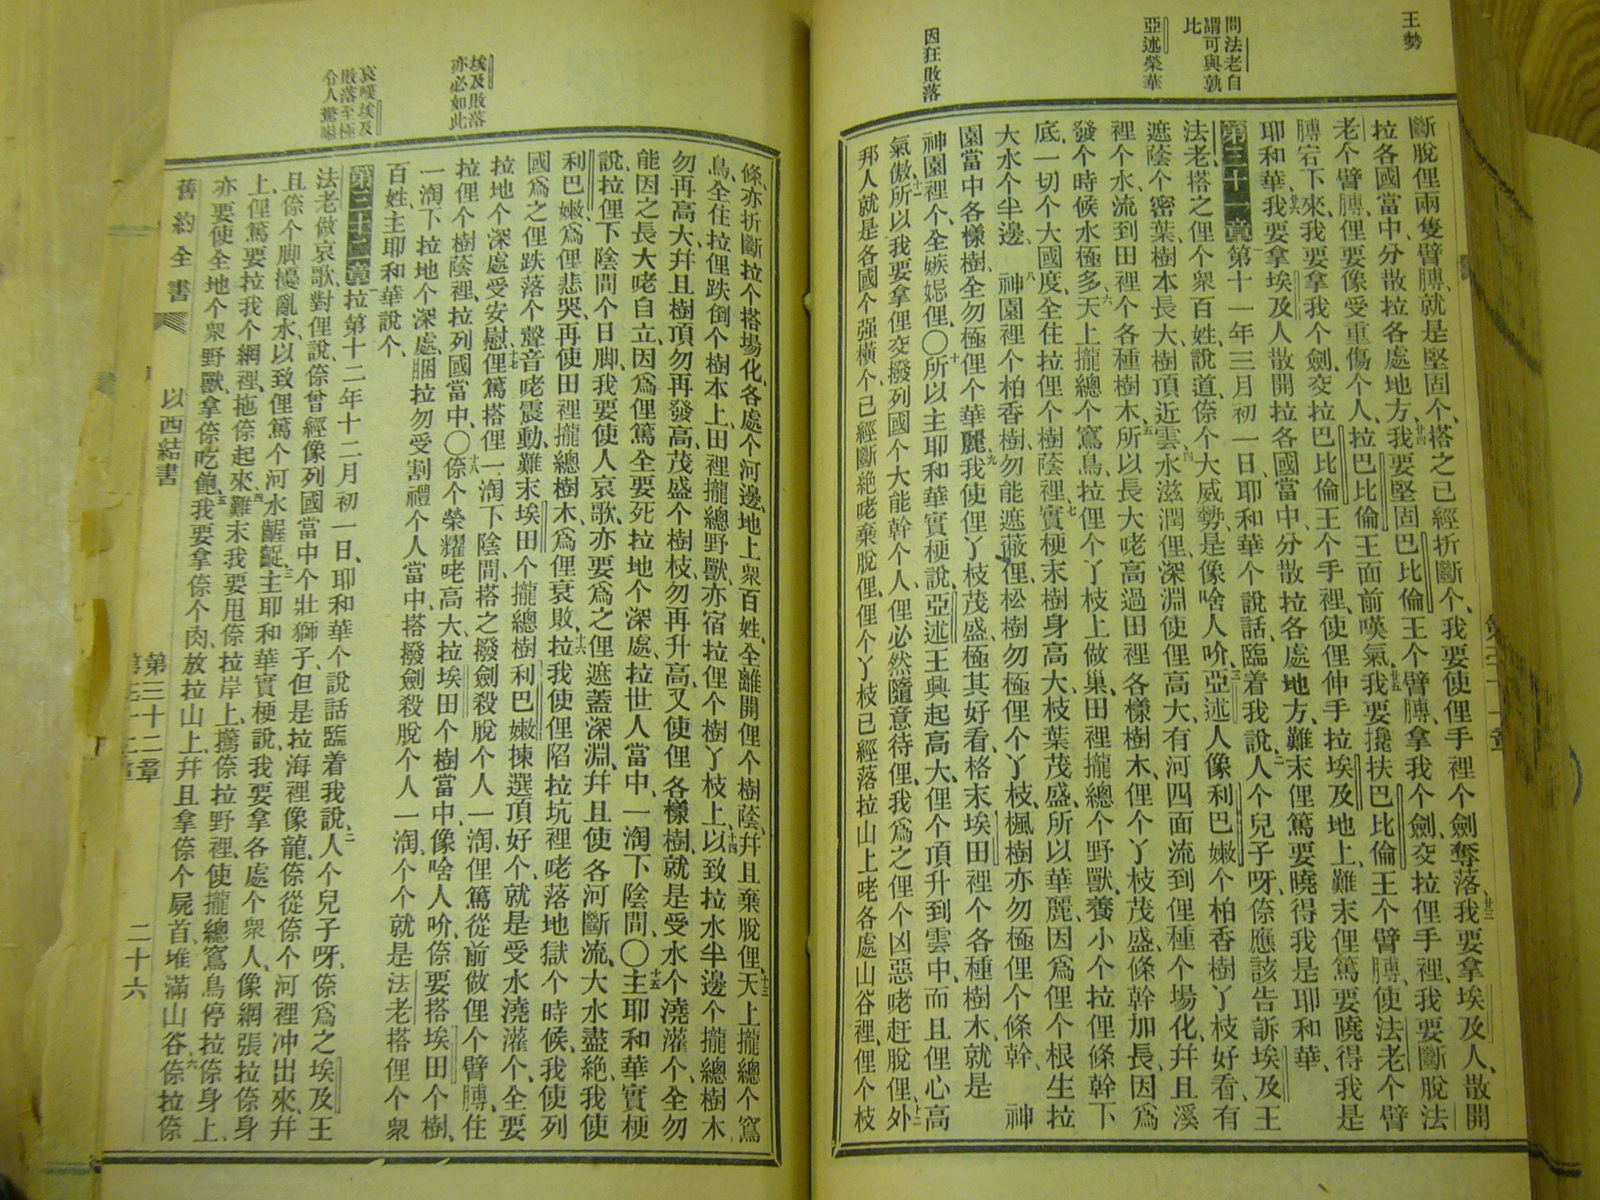 王勢
問法老自
謂可與孰
比
亞述榮華
因狂敗落
斷脫俚兩隻臂膊、就是堅固个、搭之已經折斷个、我要使俚手裡个劍奪落、我要拿埃及人、散開
拉各國當中、分散拉各處地方、我要堅固巴比倫王个臂膊、拿我个劍、交拉俚手裡、我要斷脫法
老个臂膊、俚要像受重傷个人、拉巴比倫王面前嘆氣、我要攙扶巴比倫王个臂膊、使法老个臂
膊宕下來、我要拿我个劍、交拉巴比倫王个手裡、使俚伸手拉埃及地上、難末俚篤要曉得我是
耶和華、我要拿埃及人散開拉各國當中、分散拉各處地方、難末俚篤要曉得我是耶和華、
第三十一章 第十一年三月初一日、耶和華个說話、臨着我說、人个兒子呀、倷應該告訴埃及王
法老、搭之俚个衆百姓、說道、倷个大威勢、是像啥人吤、亞述人像利巴嫩个柏香樹、丫枝好看、有
遮蔭个密葉、樹本長大、樹頂近雲、水滋潤俚、深淵使俚高大、有河四面流到俚種个場化、幷且溪
裡个水、流到田裡个各種樹木、所以長大咾高過田裡各樣樹木、俚个丫枝茂盛、條幹加長、因爲
發个時候水極多、天上攏總个窵鳥、拉俚个丫枝上做巢、田裡攏總个野獸、養小个拉俚條幹下
底、一切个大國度、全住拉俚个樹蔭裡、實梗末樹身高大、枝葉茂盛、所以華麗、因爲俚个根生拉
大水个半邊、 神園裡个柏香樹、勿能遮蔽俚、松樹勿極俚个丫枝、楓樹亦勿極俚个條幹、 神
園當中各樣樹、全勿極俚个華麗、我使俚丫枝茂盛、極其好看、格末埃田裡个各種樹木、就是
神園裡个、全嫉妬俚、〇所以主耶和華實梗說、亞述王興起高大、俚个頂升到雲中、而且俚心高
氣傲、所以我要拿俚交撥列國个大能幹个人、俚必然隨意待俚、我爲之俚个凶惡咾趕脫俚、外
邦人就是各國个强橫个、已經斷絕咾棄脫俚、俚个丫枝已經落拉山上咾各處山谷裡、俚个枝
埃及敗落
亦必如此
哀嘆埃及
敗落至極
令人驚嚇
條、亦折斷拉个搭場化各處个河邊、地上衆百姓、全離開俚个樹蔭、幷且棄脫俚、天上攏總个窵
鳥、全住拉俚跌倒个樹本上、田裡攏總野獸、亦宿拉俚个樹丫枝上、以致拉水半邊个攏總樹木
勿再高大、幷且樹頂勿再發高、茂盛个樹枝、勿再升高、又使俚各樣樹、就是受水个澆灌个、全勿
能因之長大咾自立、因爲俚篤全要死拉地个深處、拉世人當中、一淘下陰間、〇主耶和華實梗
說、拉俚下陰間个日脚、我要使人哀歌、亦要爲之俚遮蓋深淵、幷且使各河斷流、大水盡絕、我使
利巴嫩爲俚悲哭、再使田裡攏總樹木、爲俚衰敗、拉我使俚陷拉坑裡咾落地獄个時候、我使列
國爲之俚跌落个聲音咾震動、難末埃田个攏總樹、利巴嫩揀選頂好个、就是受水澆灌个、全要
拉地个深處受安慰、俚篤搭俚一淘下陰間、搭之撥劍殺脫个人一淘、俚篤從前做俚个臂膊、住
拉俚个樹蔭裡、拉列國當中、〇倷个榮耀咾高大、拉埃田个樹當中、像啥人吤、倷要搭埃田个樹、
一淘下拉地个深處、睏拉勿受割禮个人當中、搭撥劍殺脫个人一淘、个个就是法老搭俚个衆
百姓、主耶和華說个、
第三十二章 拉第十二年十二月初一日、耶和華个說話臨着我說、人个兒子呀、倷爲之埃及王
法老做哀歌、對俚說、倷曾經像列國當中个壯獅子、但是拉海裡像龍、倷從倷个河裡冲出來、幷
且倷个脚擾亂水、以致俚篤个河水齷齪、主耶和華實梗說、我要拿各處个衆人、像網張拉倷身
上、俚篤要拉我个網裡、拖倷起來、難末我要甩倷拉岸上、攜倷拉野裡、使攏總窵鳥停拉倷身上、
亦要使全地个衆野獸、拿倷吃飽、我要拿倷个肉、放拉山上、幷且拿倷个屍首、堆滿山谷、倷拉倷
舊約全書 以西結書 第三十二章 二十六